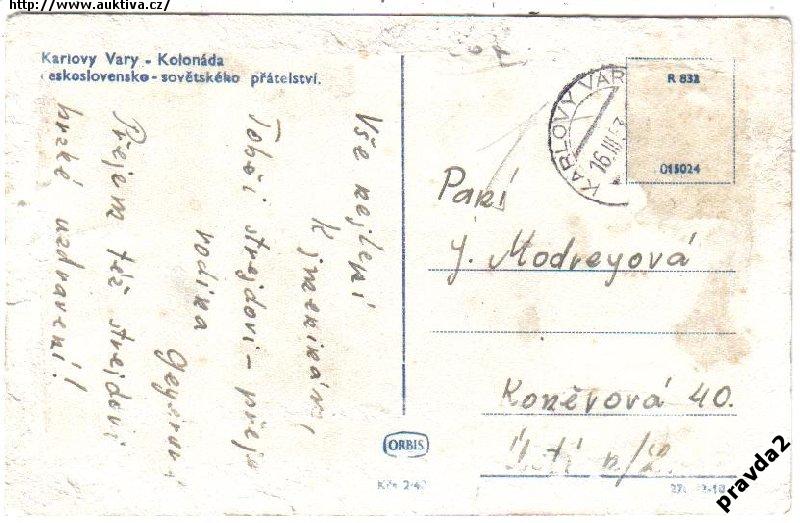 http://www.auktiva.cz/
Karlovy Vary - Kolonáda
československo-sovětského přátelství.
Vše nejlepší
K jmeninám,
Tobě i strejdovi - přeje
rodina
Přejem též strejdovi
brzké uzdravení!
KARLOVY VARY
16.III.53
R 832
015024
Paní
J. Modreyová
Koněvová 40.
Ústí n/L.
ORBIS
pravda2